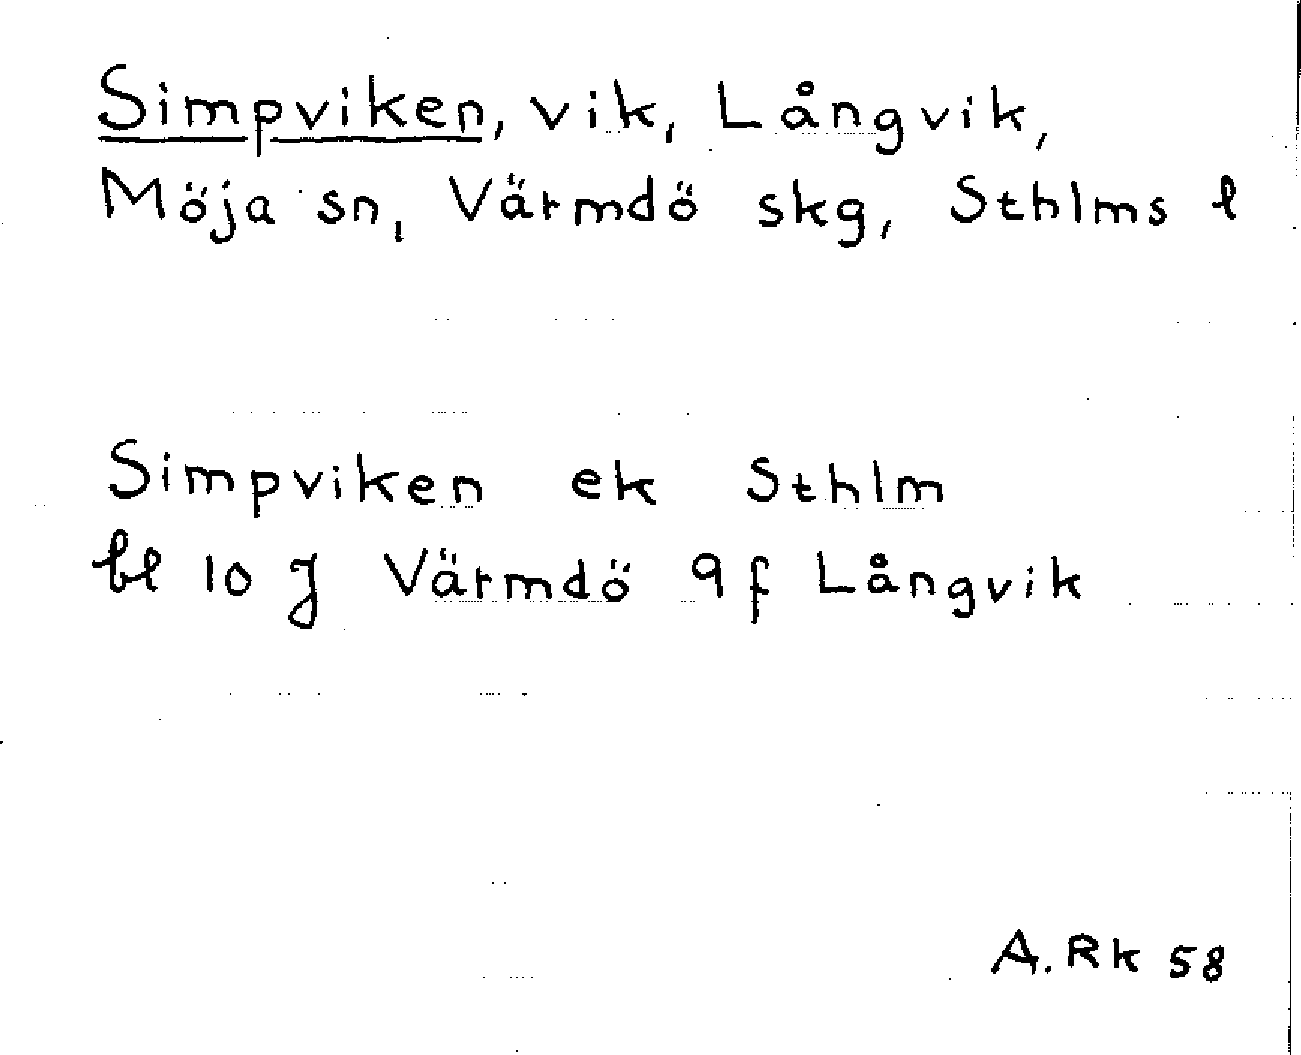 Simpviken, vik, Långvik,
Möja sn, Värmdö skg, Sthlms l
Simpviken ek Sthlm
bl 10 J Värmdö 9f Långvik
A. Rk 58